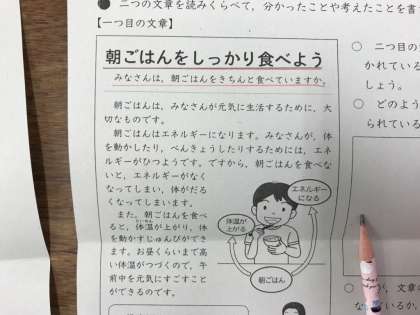 ● 二つの文章を読みくらべて、分かったことや考えたことを書
【一つ目の文章】
朝ごはんをしっかり食べよう
みなさんは、朝ごはんをきちんと食べていますか。
朝ごはんは、みなさんが元気に生活するために、大
切なものです。
朝ごはんはエネルギーになります。みなさんが、体
を動かしたり、べんきょうしたりするためには、エネ
ルギーがひつようです。ですから、朝ごはんを食べな
いと、エネルギーがなく
なってしまい、体がだる
くなってしまいます。
また、朝ごはんを食べ
ると、体温が上がり、体
を動かすじゅんびができ
ます。お昼くらいまで高
い体温がつづくので、午
前中を元気にすごすこと
ができるのです。
体温が
上がる
エネルギー
になる
朝ごはん
○ 二つ目の
かれている
しょう。
○ どのよう
られている
○ が、文章